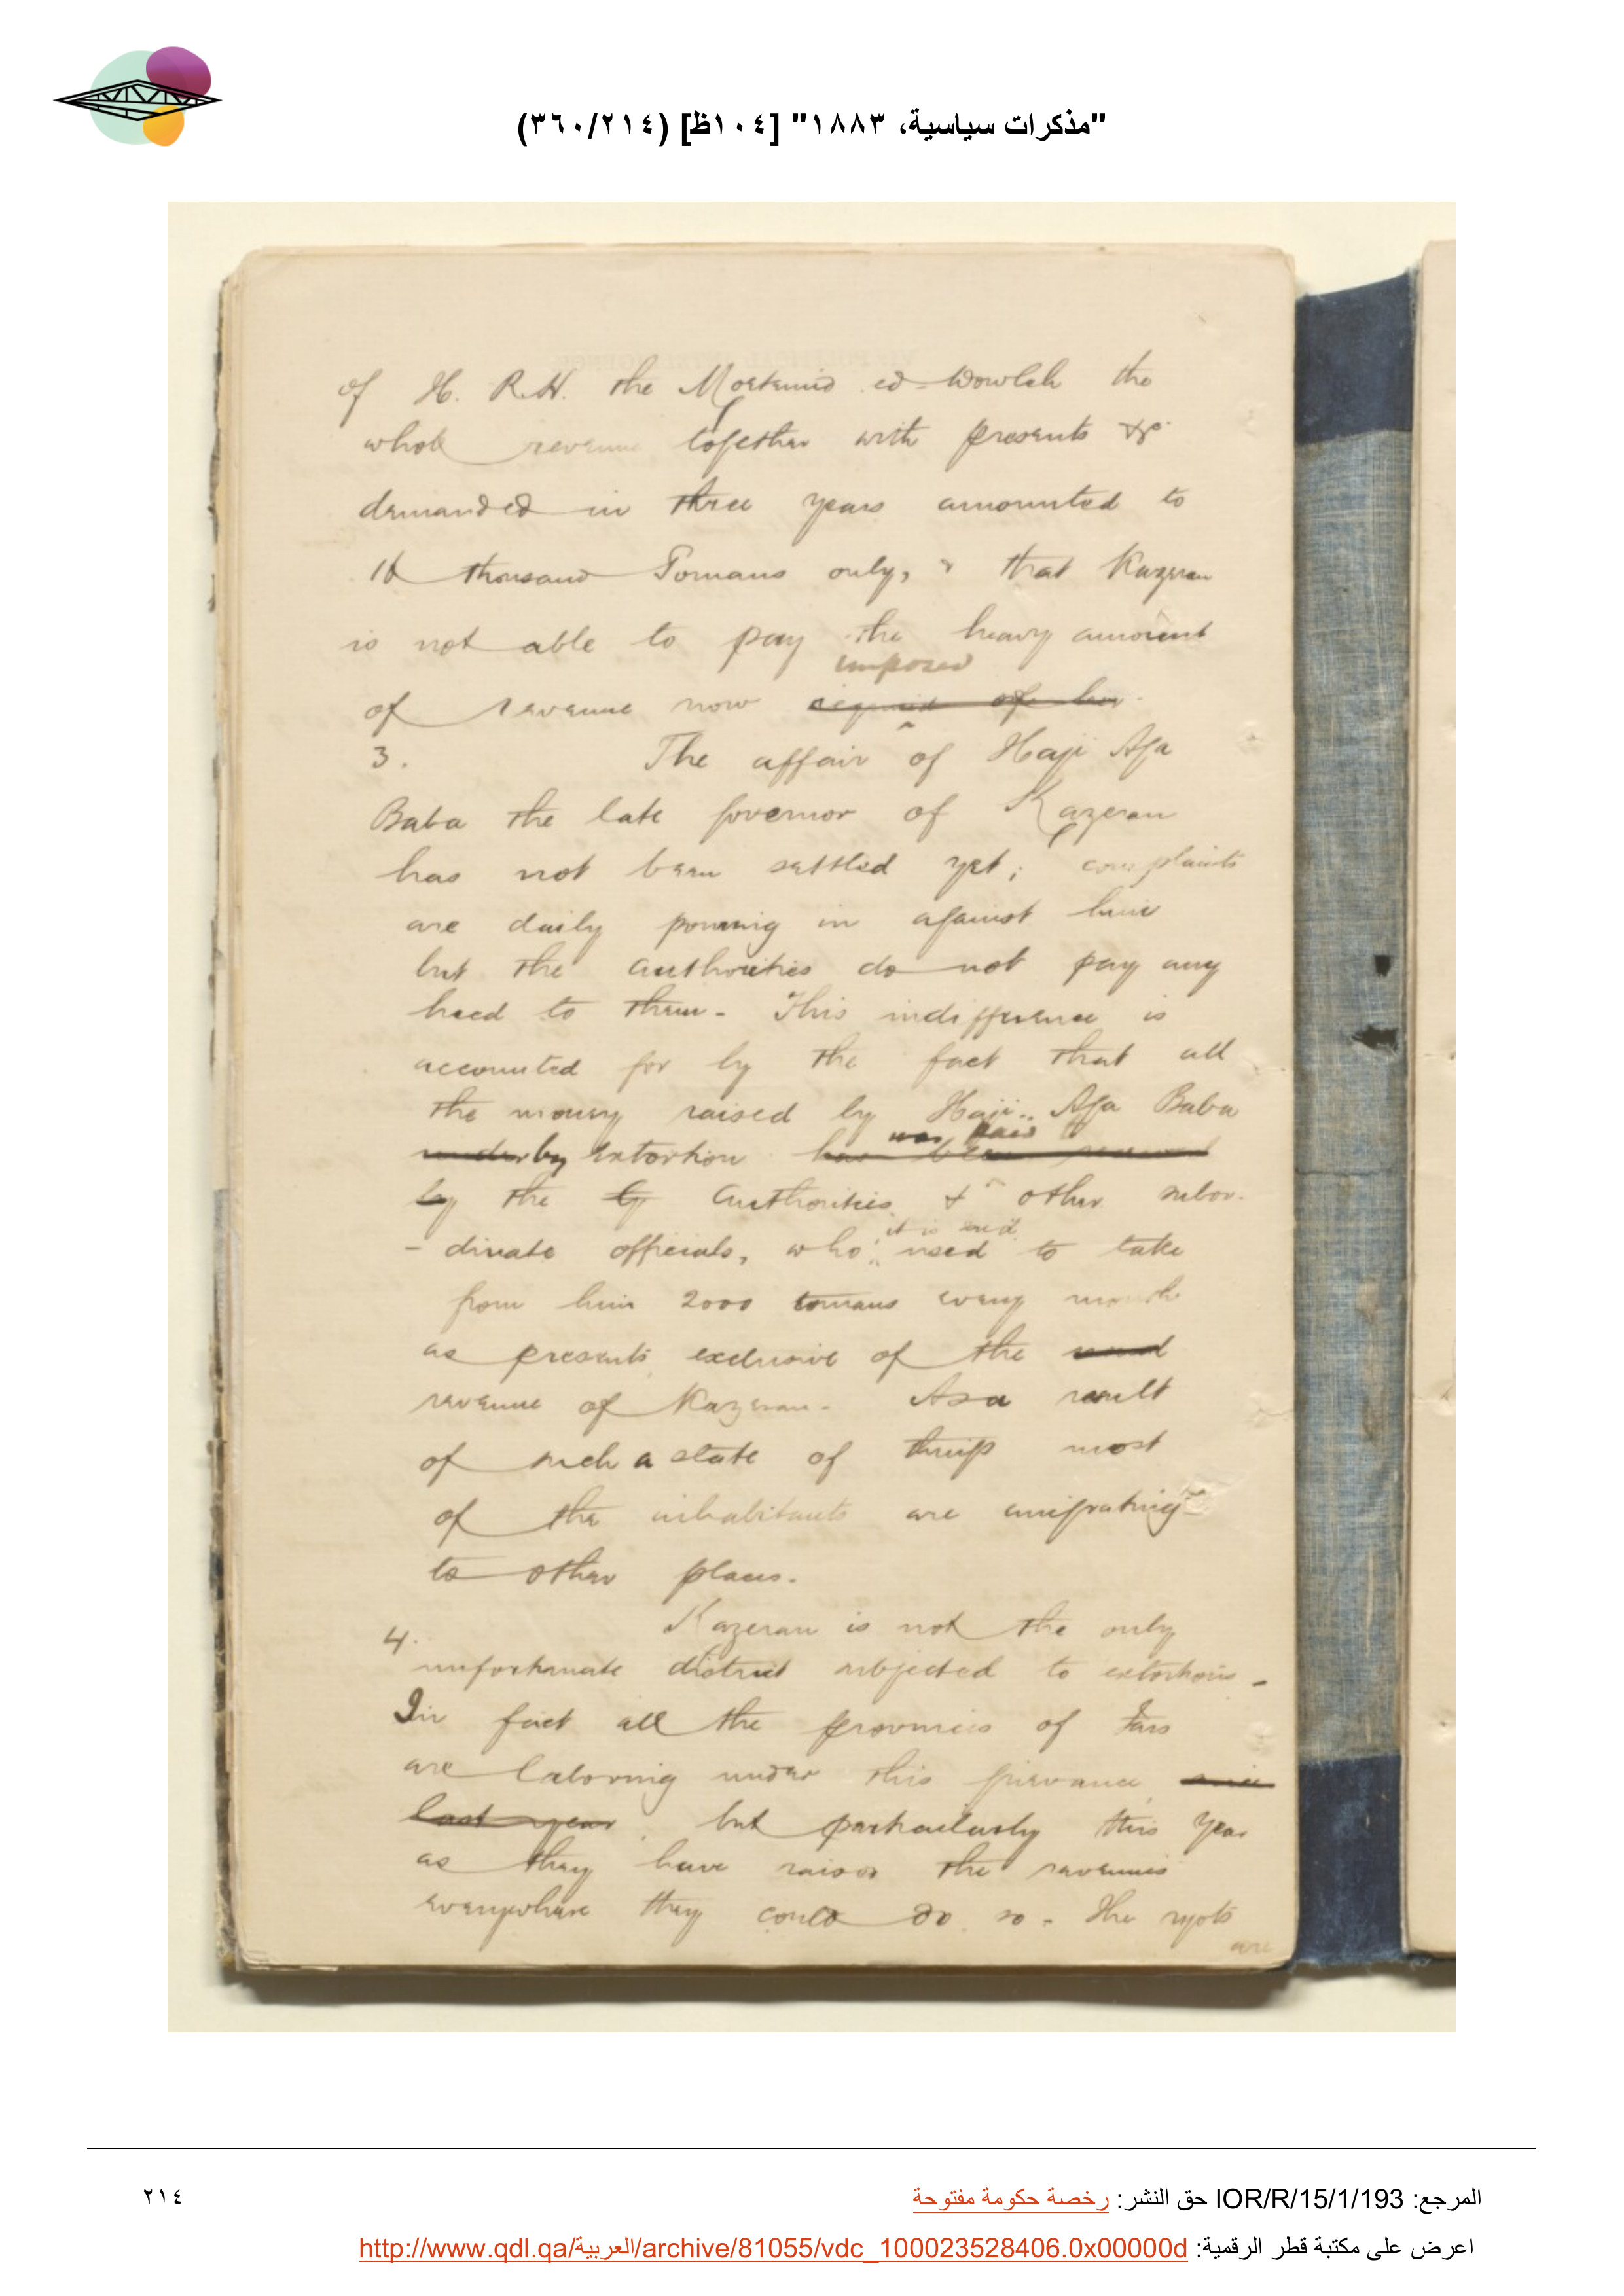 "مذكرات سياسية، ١٨٨٣" [١٠٤ظ] (٣٦٠/٢١٤)
of H. R.H. the Moetemid ed-Dowleh the
whole revenue together with presents &c.
demanded in three years amounted to
thousand Tomans only, & that Kazeran
is not able to pay the heavy amount
imposed
of revenue now
3. The affair of Haji Aga
Baba the late governor of Kazeran
has not been settled yet; complaints
are daily pouring in against him
but the authorities do not pay any
heed to them - This indifference is
accounted for by the fact that all
the money raised by Haji Aga Baba
was paid
under by extortion has been received
by the by authorities & other subor-
it is said
- dinate officials, who used to take
from him 2000 tomans every month
as presents exclusive of the
revenue of Kazeran - As a result
of such a state of things most
of the inhabitants are emigrating
to other places.
4. Kazeran is not the only
unfortunate district subjected to extortions -
In fact all the provinces of Fars
are laboring under this grievance since
last year, but particularly this year
as they have raised the revenues
everywhere they could do so - The ryots
are
المرجع: IOR/R/15/1/193 حق النشر: رخصة حكومة مفتوحة
٢١٤
اعرض على مكتبة قطر الرقمية: http://www.qdl.qa/العربية/archive/81055/vdc_100023528406.0x00000d